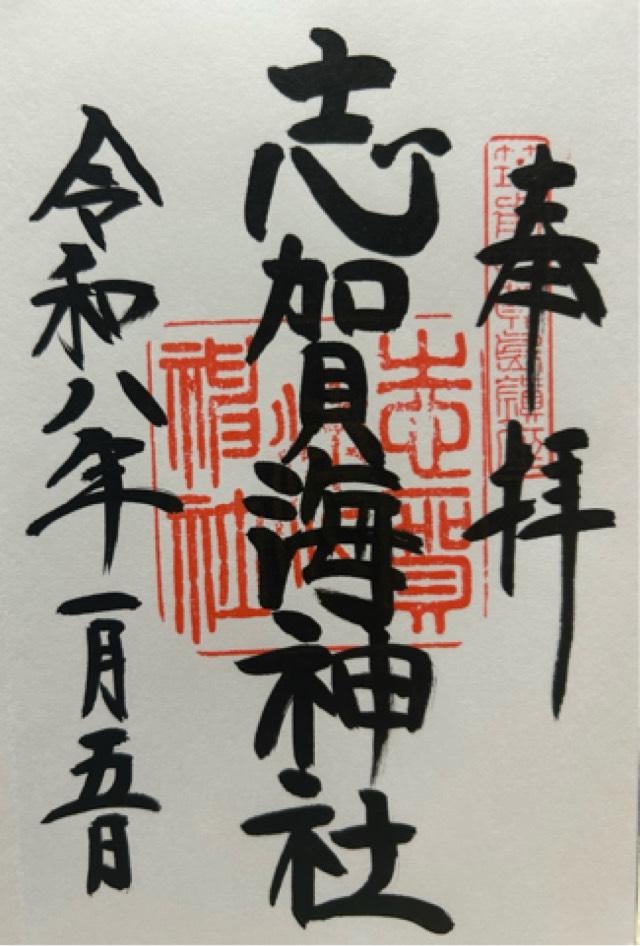 奉拝
志賀海神社
令和八年一月五日
志賀海神社